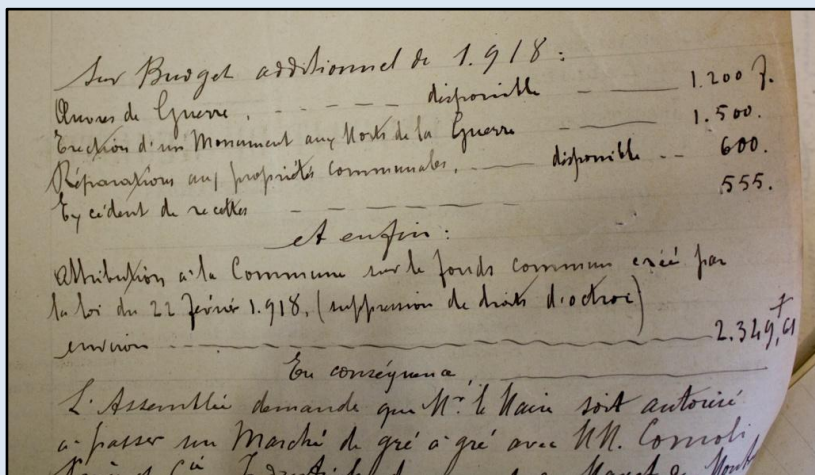 Sur Budget additionnel de 1.918 :
Œuvres de Guerre, - - - - disponible - —— 1.200 f.
Erection d'un Monument aux Morts de la Guerre - —— 1.500.
Réparations aux propriétés communales, - —— disponible -- 600.
Excédent de recettes - —— 555.
et enfin :
Attribution à la Commune sur le fonds commun créé par
la loi du 22 février 1.918, (suppression de droits d'octroi)
environ —— 2.349,61
En conséquence, ——
L'Assemblée demande que Mr. le Maire soit autorisé
à passer un Marché de gré à gré avec MM. Comoli